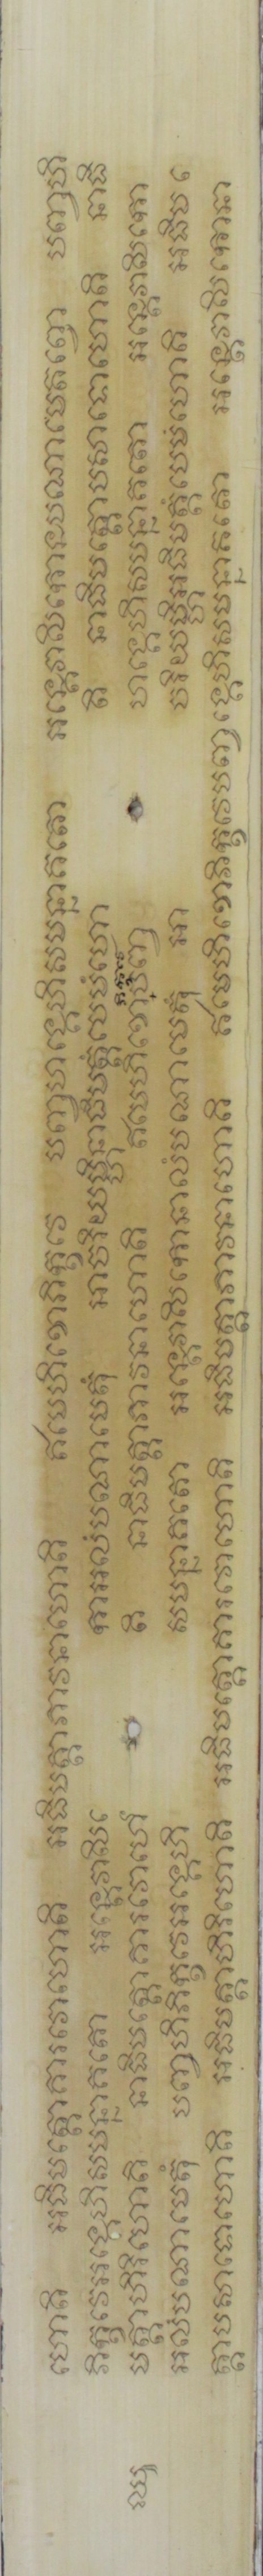 ហោតិ អធិមត្តោគារវោហោតិ អធិមត្តាភាវនាហោតិ ឥមេហិខោភិក្ខវេ បញ្ចហង្គេហិសមន្នាគតោ អន្តេវាសិកោនបណាមេតព្វោ បញ្ចហិ
ភិក្ខវេអង្គេហិសមន្នាគតោ អន្តេវាសិ កោអលំបណាមេតុំ អាចរិយម្ហិនាធិមត្តំបេមំហោ តិ នាធិមត្តោបសាទោហោតិ នាធិ
មត្តាហិរិហោតិ នាធិមត្តោគារវោហោ តិ នាធិមត្តាភាវនាហោតិ ឥមេហិខោភិក្ខវេបញ្ច ហង្គេហិសមន្នាគតោ អន្តេវាសិកោ
អលំបណាមេតុំ បញ្ចហិភិក្ខវេអង្គេហិ សមន្នាគតោ អន្តេវាសិកោនាលំបណាមេតុំ អា ចរិយម្ហិអធិមត្តំបេមំហោតិ អធិម
ត្តោបសាទោហោតិ អធិមត្តាហិរិហោតិ អធិមត្តោគារវោហោតិ អធិមត្តាភាវនាហោតិ ឥមេហិខោភិក្ខវេបញ្ចង្គេហិសមន្នាគតោ អន្តេវាសិកោនា